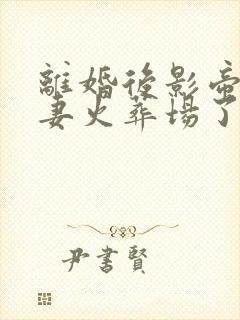 離婚後影帝
妻火葬場了
尹書賢